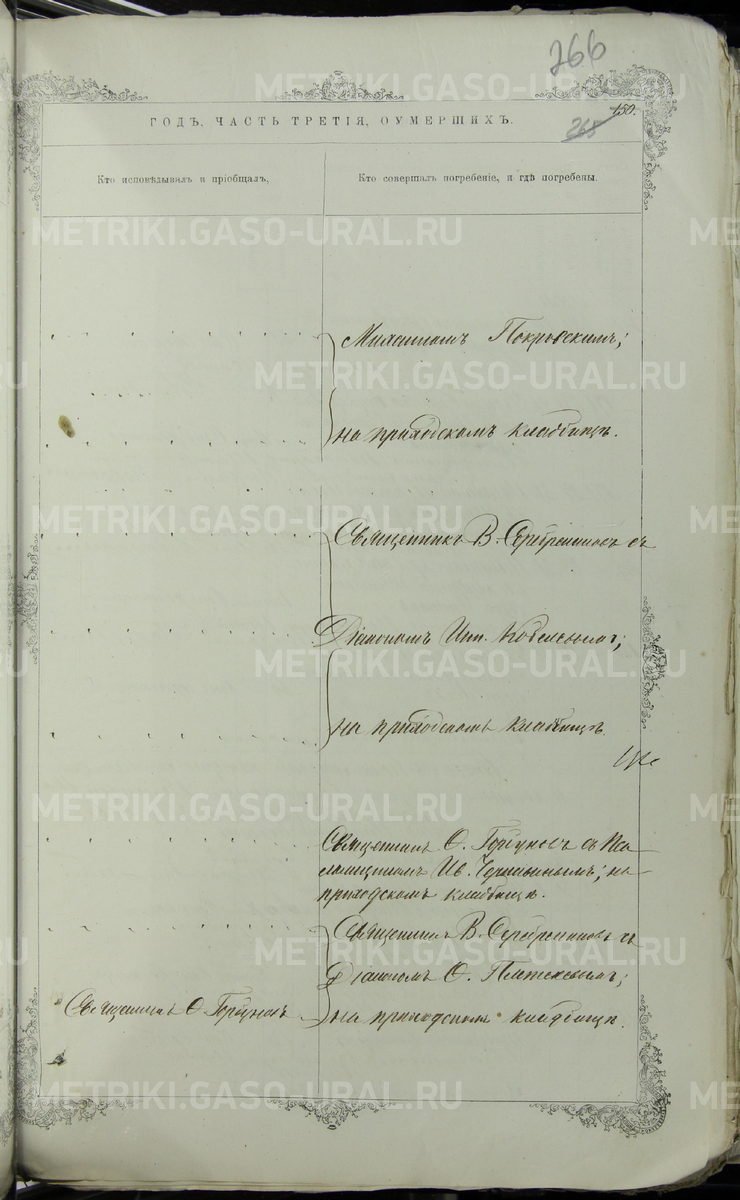 266
150.
265
ГОДЪ, ЧАСТЬ ТРЕТІЯ, ОУМЕРШИХЪ.
Кто исповѣдывалъ и пріобщалъ,
Кто совершалъ погребеніе, и гдѣ погребены.
METRIKI.GASO-URAL.RU
Покровскимъ;
на приходскомъ кладбищѣ.
Священникъ В. Серебренниковъ съ
Діакономъ Ип.
на приходскомъ кладбищѣ.
Священникъ Ѳ. Горбуновъ съ Пса-
ломщикомъ Ив. на
приходскомъ кладбищѣ.
Священникъ В. Серебренниковъ съ
Діакономъ Ѳ.
Священникъ Ѳ. Горбуновъ
на приходскомъ кладбищѣ.